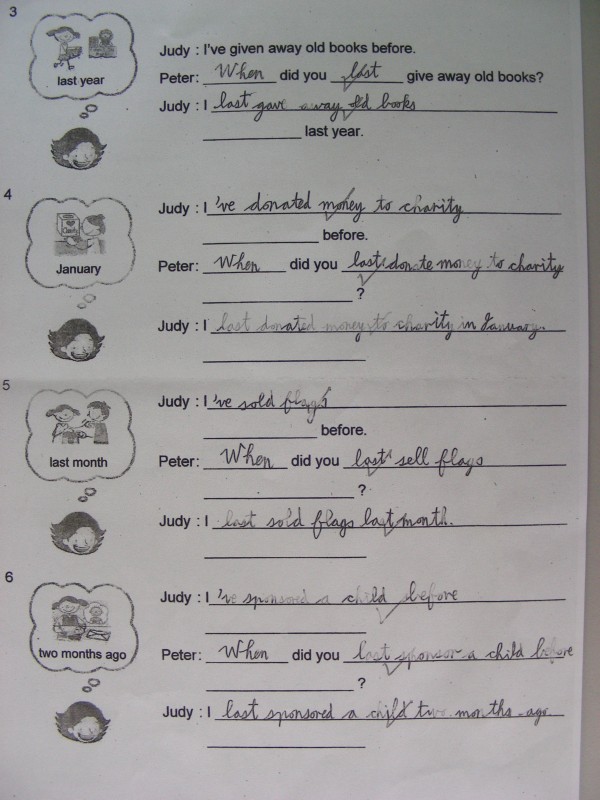 3
last year
Judy : I've given away old books before.
Peter: When did you last give away old books?
Judy : I last gave away old books
last year.
4
January
Judy : I 've donated money to charity
before.
Peter: When did you last donate money to charity
?
Judy : I last donated money to charity in January.
5
last month
Judy : I 've sold flags
before.
Peter: When did you last sell flags
?
Judy : I last sold flags last month.
6
two months ago
Judy : I 've sponsored a child before
Peter: When did you last sponsor a child before
?
Judy : I last sponsored a child two months ago.